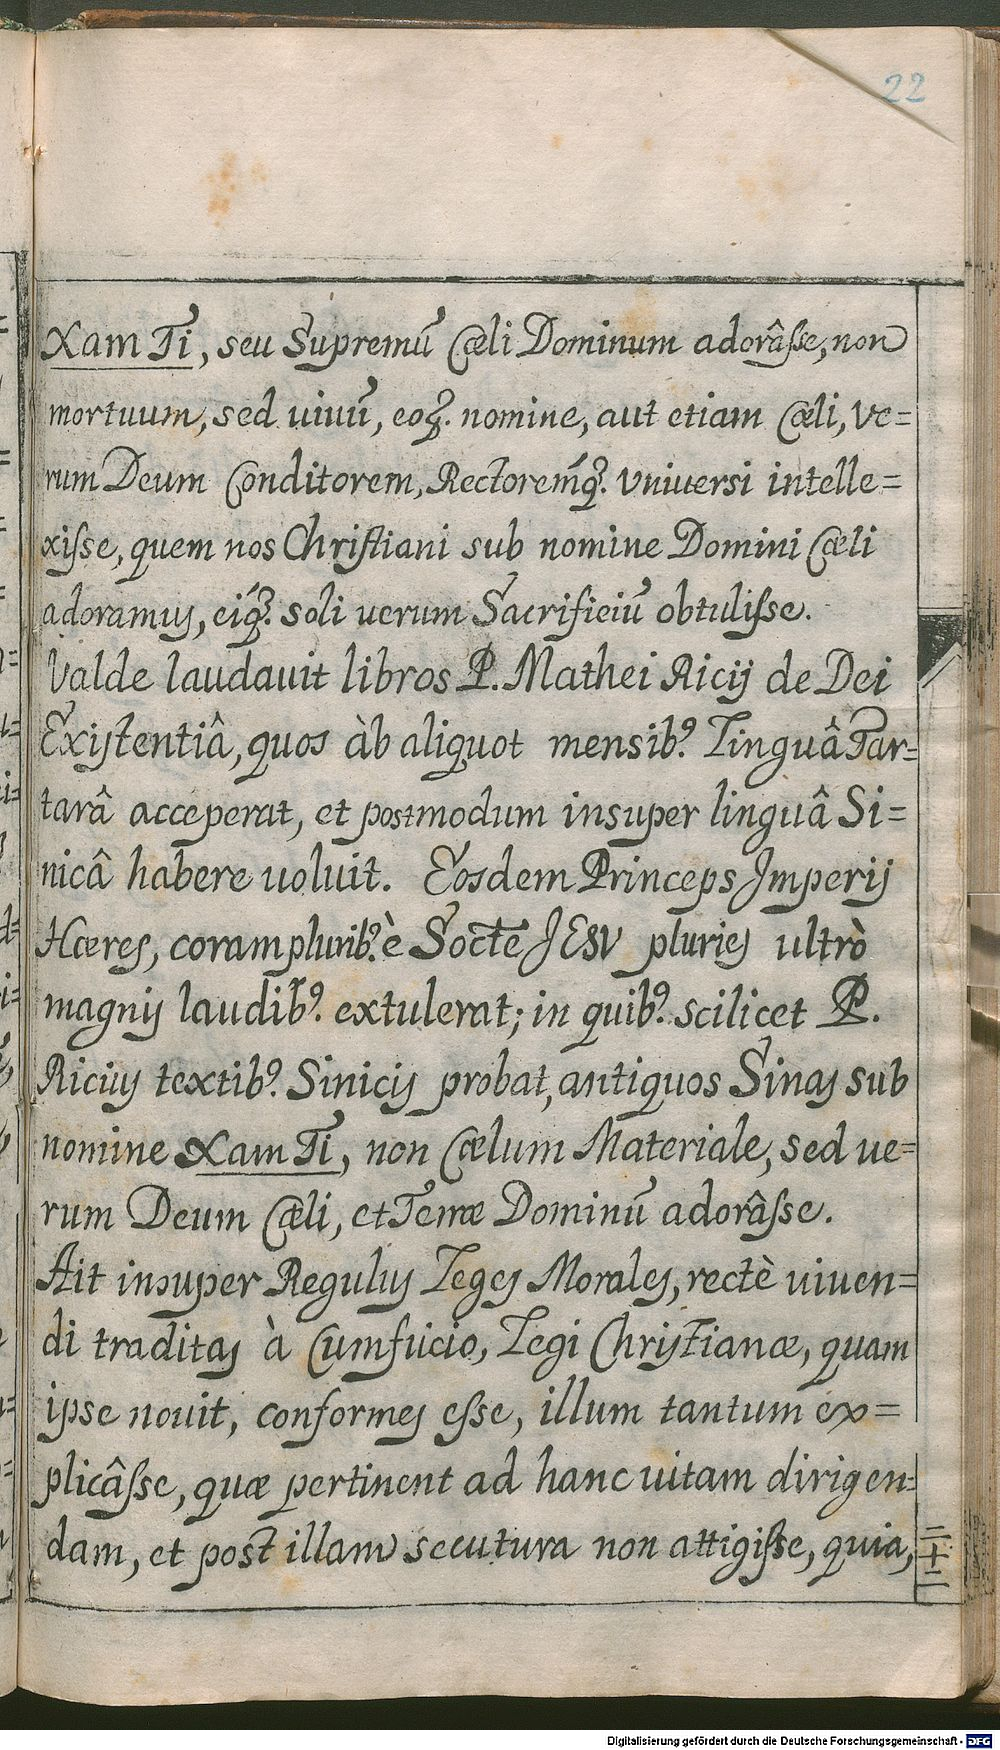 22
Xam Ti, seu Supremū Cæli Dominum adorâsse, non
mortuum, sed uiuū, eoq̃. nomine, aut etiam Cæli, ve=
rum Deum Conditorem, Rectoreḿq̃. vniuersi intelle=
xisse, quem nos Christiani sub nomine Domini Cæli
adoramus, eiq̃. soli uerum Sacrificiū obtulisse.
Valde laudauit libros P. Mathei Ricij de Dei
Existentiâ, quos àb aliquot mensib9. Linguâ Tar=
tarâ acceperat, et postmodum insuper linguâ Si=
nicâ habere uoluit. Eosdem Princeps Imperij
Hæres, coram plurib9. è Soctē JESV pluries ultrò
magnis laudib9. extulerat; in quib9. scilicet P.
Ricius textib9. Sinicis probat, antiquos Sinas sub
nomine Xam Ti, non Cælum Materiale, sed ue=
rum Deum Cæli, et Terræ Dominū adorâsse.
Ait insuper Regulus Leges Morales, rectè uiuen=
di traditas à Cumfucio, Legi Christianæ, quam
ipse nouit, conformes esse, illum tantum ex=
plicâsse, quæ pertinent ad hanc uitam dirigen=
dam, et post illam secutura non attigisse, quia,
二十二
Digitalisierung gefördert durch die Deutsche Forschungsgemeinschaft - DFG